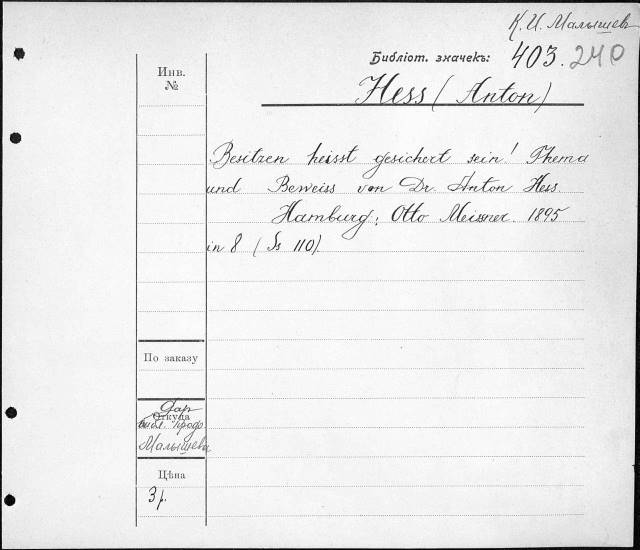 К. И. Малышевъ
Библіот. значекъ: 403. 240
Инв.
№
Hess (Anton)
Besitzen heisst gesichert sein! Thema
und Beweiss von Dr. Anton Hess.
Hamburg, Otto Meissner. 1895
in 8 (Ss 110).
По заказу
Дар
Откуда
библ. проф.
Малышева
Цѣна
3 р.